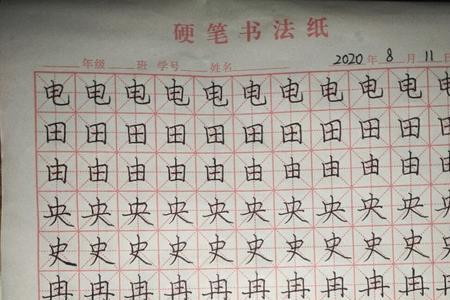 硬笔书法纸
年级 班 学号 姓名 2020年 8月 11日
电电电电电电电电电电电
田田田田田田田田田田田
由由由由由由由由由由由
央央央央央央央央央央央
史史史史史史史史史史史
冉冉冉冉冉冉冉冉冉冉冉